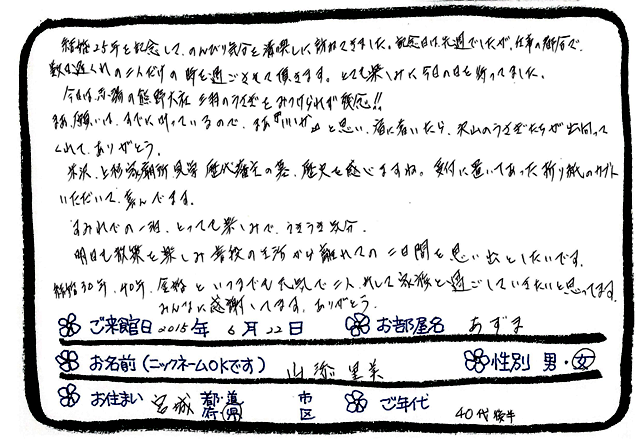 結婚25年を記念して、のんびり気分を満喫しに訪ねてきました。記念日は先週でしたが、仕事の都合で、
数日遅くれの二人だけの時を過ごさせて頂きます。とても楽しみに今日の日を待ってました。
今日は、赤湯の熊野大社 三羽のうさぎをみつけられず残念!!
まあ、願いは、すでに叶っているので、まあ「いいか」と思い、宿に着いたら、沢山のうさぎたちが出向って
くれて、ありがとう。
米沢、上杉家廟所見学 歴代藩主の墓、歴史を感じますね。受付に置いてあった折り紙のカブト
いただいて、喜んでます。
すみれでの一泊、とっても楽しみで、うきうき気分。
明日も散策を楽しみ 普段の生活から離れての二日間を思い出としたいです。
結婚30年、40年、金婚といつまでも元気で二人、そして家族と過ごしていきたいと思ってます。
みんなに感謝してます。ありがとう。
ご来館日 2015年 6月 22日 お部屋名 あずま
お名前(ニックネームOKです) 山添 里美 性別 男・女
お住まい 宮城 都道府県 市区 ご年代 40代後半